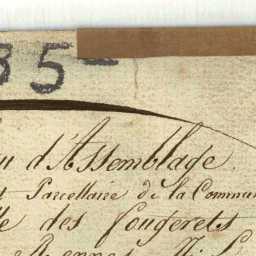 35-
u d'Assemblage
Parcellaire de la Commun
des fougerets
Rennes